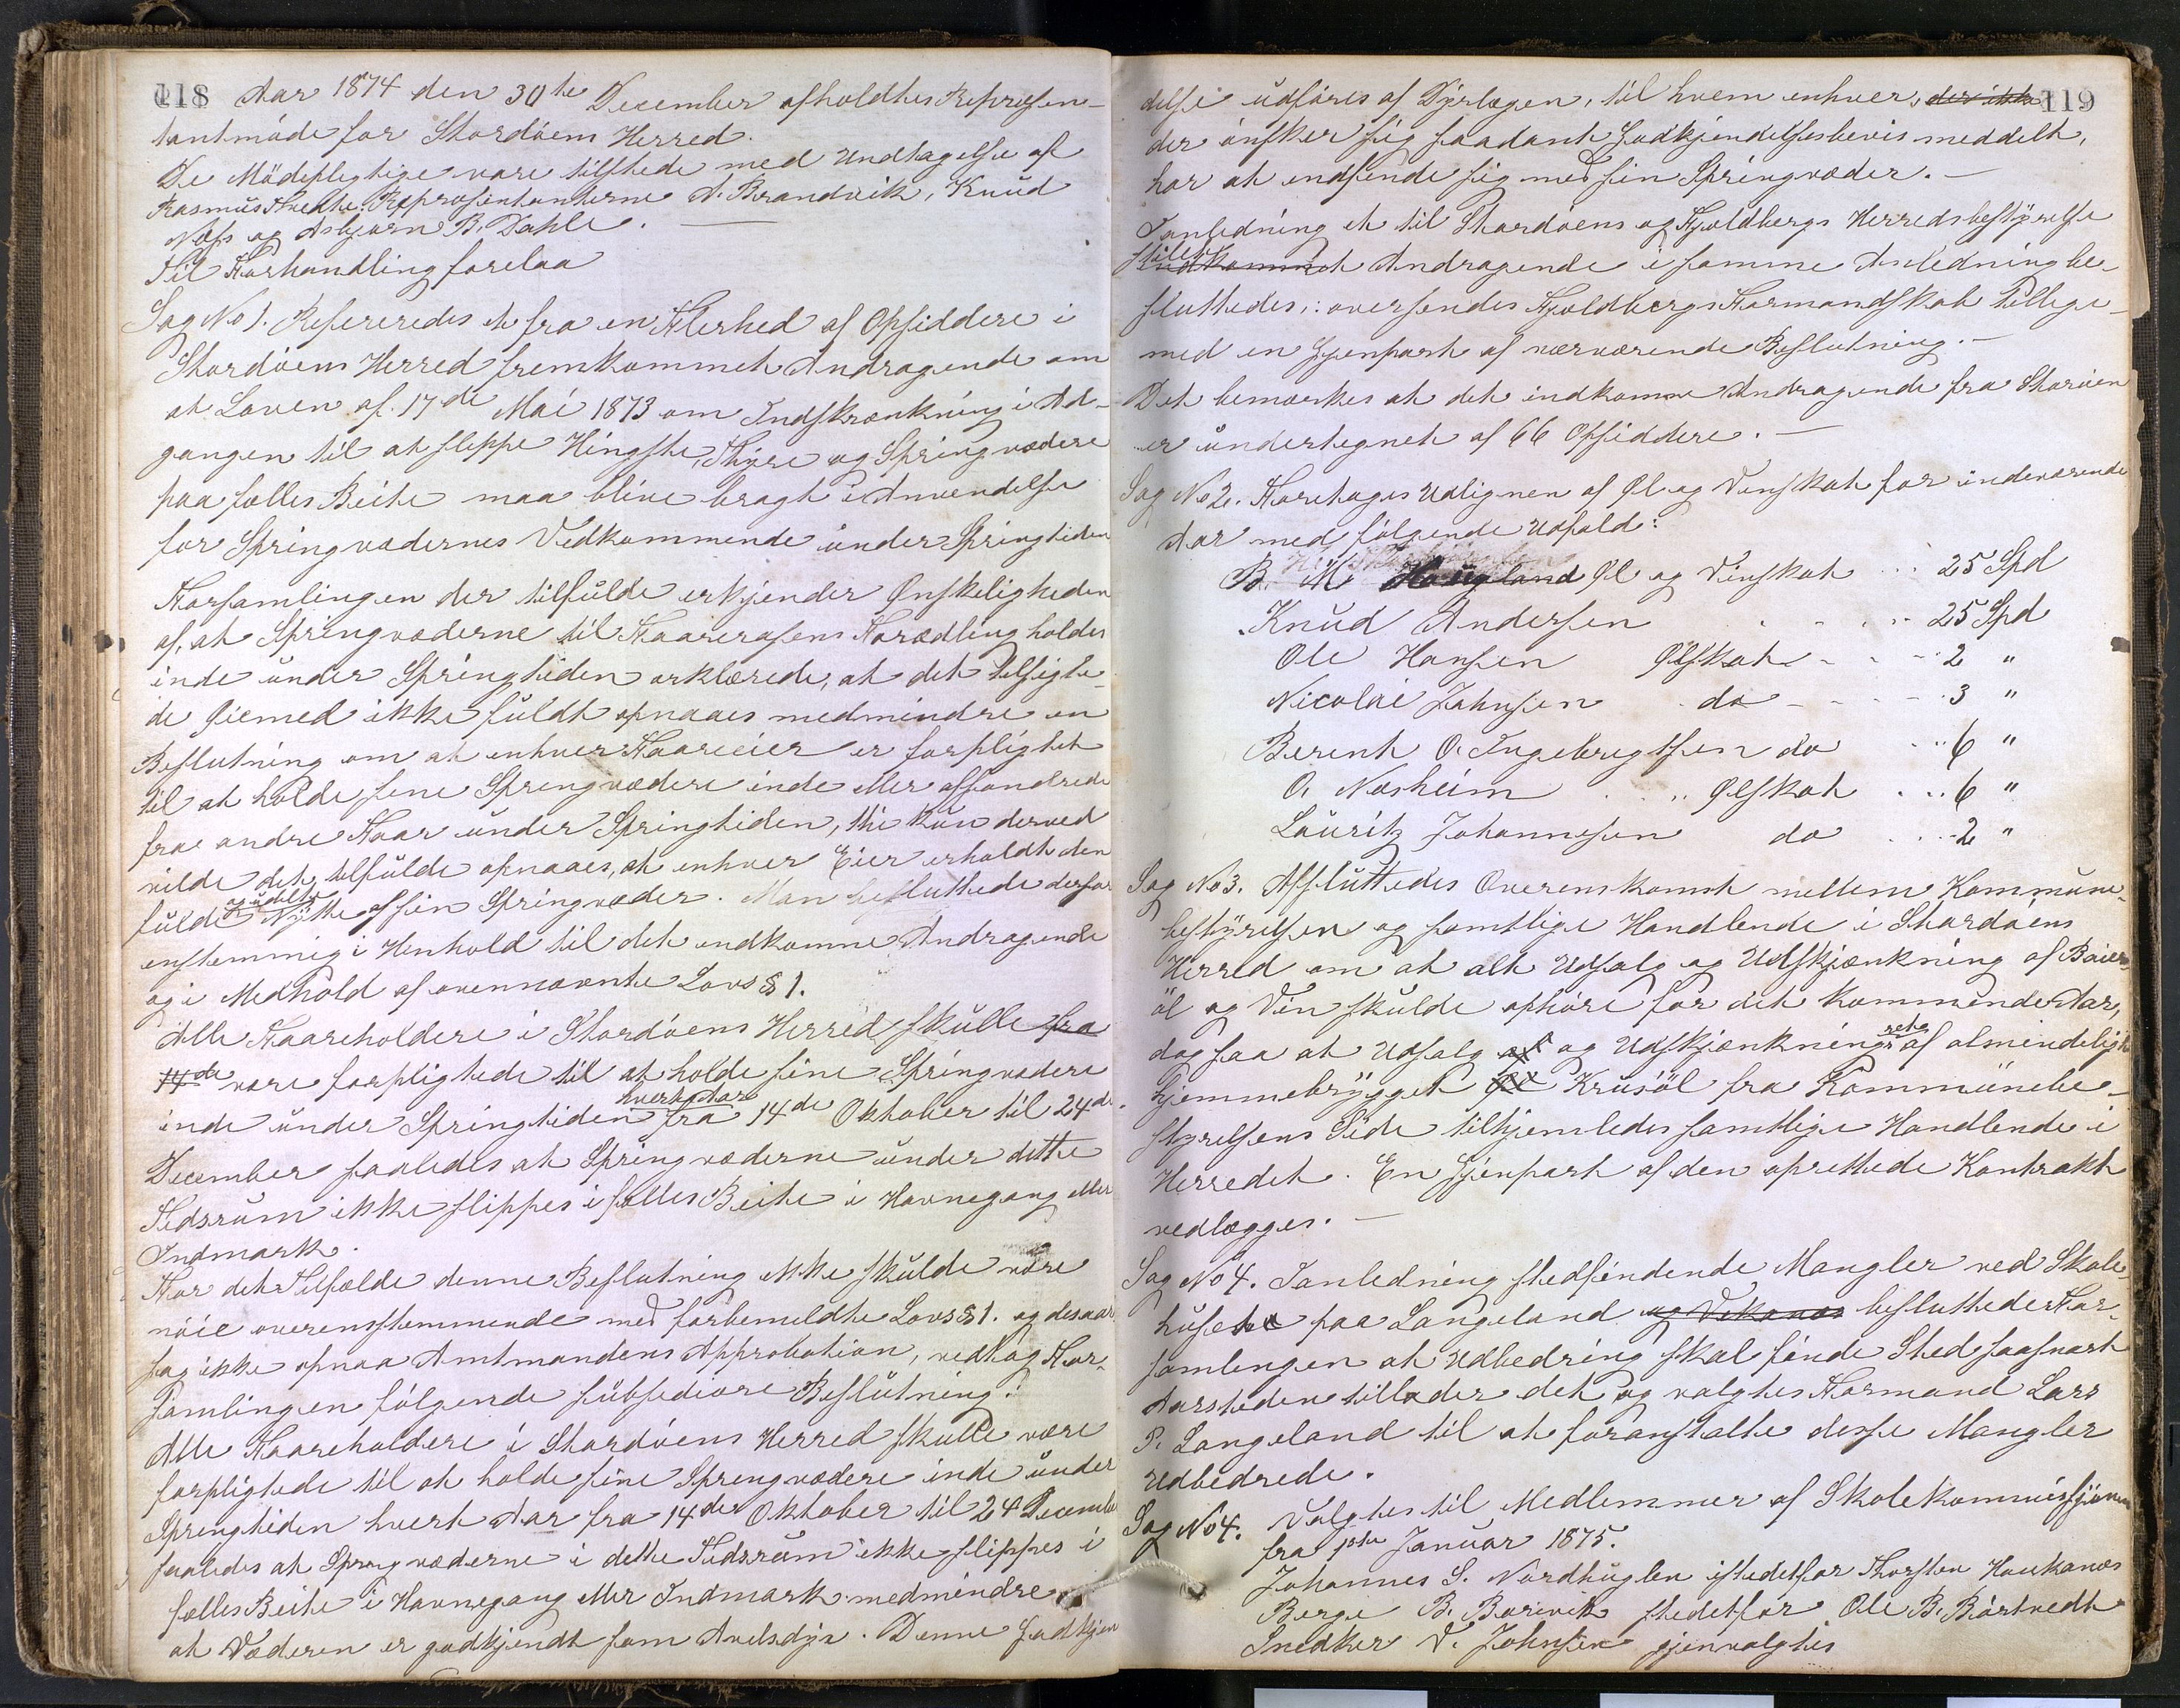 118
Aar 1874 den 30te December afholdtes Repræsen-
tantmöde for Stordöens Herred.
De Mödepligtige vare tilstede med Undtagelse af
Rasmus Hvedte. Repræsentanterne A. Brandvik, Knud
Næss og Asbjørn B. Dahle.
Til Forhandling forelaa
Sag No 1. Refereredes et fra en Flerhed af Opsiddere i
Stordöens Herred fremkommet Andragende om
at Loven af 17de Mai 1873 om Indskrænkning i Ad-
gangen til at slippe Hingste, Thyre og Springvædere
paa fælles Beite maa blive bragt i Anvendelse
for Springvædernes Vedkommende under Springtiden
Forsamlingen der tilfulde erkjender Ønskeligheden
af, at Springvæderne til Faareracens Forædling holdes
inde under Springtiden erklærede, at det tilsigte-
de Øiemed ikke fuldt opnaaes medmindre en
Beslutning om at enhver Faareeier er forpligtet
til at holde sine Springvædere inde eller afsondrede
fra andre Faar under Springtiden, thi kun derved
vilde det tilfulde opnaaes, at enhver Eier erholdt den
fulde og udelte Nytte af sin Springvæder. Man besluttede derfor
enstemmig i Henhold til det indkomne Andragende
og i Medhold af ovennævnte Lovs § 1.
Alle Faareholdere i Stordöens Herred skulle fra
14de være forpligtede til at holde sine Springvædere
inde under Springtiden hvert Aar fra 14de Oktober til 24de
December saaledes at Springvæderne under dette
Tidsrum ikke slippes i fælles Beite i Havnegang eller
Indmark.
For det Tilfælde denne Beslutning ikke skulde være
nöie overensstemmende med forbemeldte Lovs § 1. og desaar-
sag ikke opnaa Amtmandens Approbation, vedtog For-
samlingen følgende subsidiære Beslutning:
Alle Faareholdere i Stordöens Herred skulle være
forpligtede til at holde sine Springvædere inde under
Springtiden hvert Aar fra 14de Oktober til 24 December
saaledes at Springvæderne i dette Tidsrum ikke slippes i
fælles Beite i Havnegang eller Indmark medmindre
at Væderen er godkjendt som Avlsdyr. Denne Godkjen
119
delse udföres af Dyrlægen, til hvem enhver, der ikke
der önsker sig saadant Godkjendelsesbevis meddelt,
har at indfinde sig med sin Springvæder. —
I anledning et til Stordöens og Fjeldbergs Herredsbestyrelse
stilet
indkommet Andragende i samme Anledning be-
sluttedes: oversendes Fjeldbergs Formandskab tillige-
med en Gjenpart af nærværende Beslutning. —
Det bemærkes at det indkomne Andragende fra Storöen
er undertegnet af 66 Opsiddere. —
Sag No 2. Foretoges Udlignen af Øl og Vinskat for indeværende
Aar med fölgende Udfald:
B. M. Haugland Øl og Vinskat . . 25 Spd
Knud Andersen . . . . 25 Spd
Ole Hansen Ølskat - - - 2 "
Nicolai Johnsen do - - - 3 "
Berent O. Ingebregtsen do . . 6 "
O. Næsheim . . . Ølskat . . . 6 "
Lauritz Johannesen do . . . 2 "
Sag No 3. Afsluttedes Overenskomst mellem Kommune-
bestyrelsen og samtlige Handlende i Stordöens
Herred om at alt Udsalg og Udskjænkning af Baier-
öl og Vin skulde ophöre for det kommende Aar,
dog saa at Udsalg af og Udskjænknings ret af almindeligt
hjemmebrygget Øl Krusöl fra Kommunebe-
styrelsens Side tilhjemledes samtlige Handlende i
Herredet. En Gjenpart af den oprettede Kontrakt
vedlægges. —
Sag No 4. I anledning stedfindende Mangler ved Skole-
huset paa Langeland og Vekanes besluttede For-
samlingen at Udbedring skal finde Sted saasnart
Aarstiden tillader det og valgtes Formand Lars
P. Langeland til at foranstalte disse Mangler
Udbedrede.
Sag No 4. Valgtes til Medlemmer af Skolekommissjonen
fra 1ste Januar 1875.
Johannes S. Nordhuglen istedetfor Thorsten Haukanæs
Berge B. Borevik stedetfor Ole B. Börtvedt
Snedker V. Johnsen gjenvalgtes